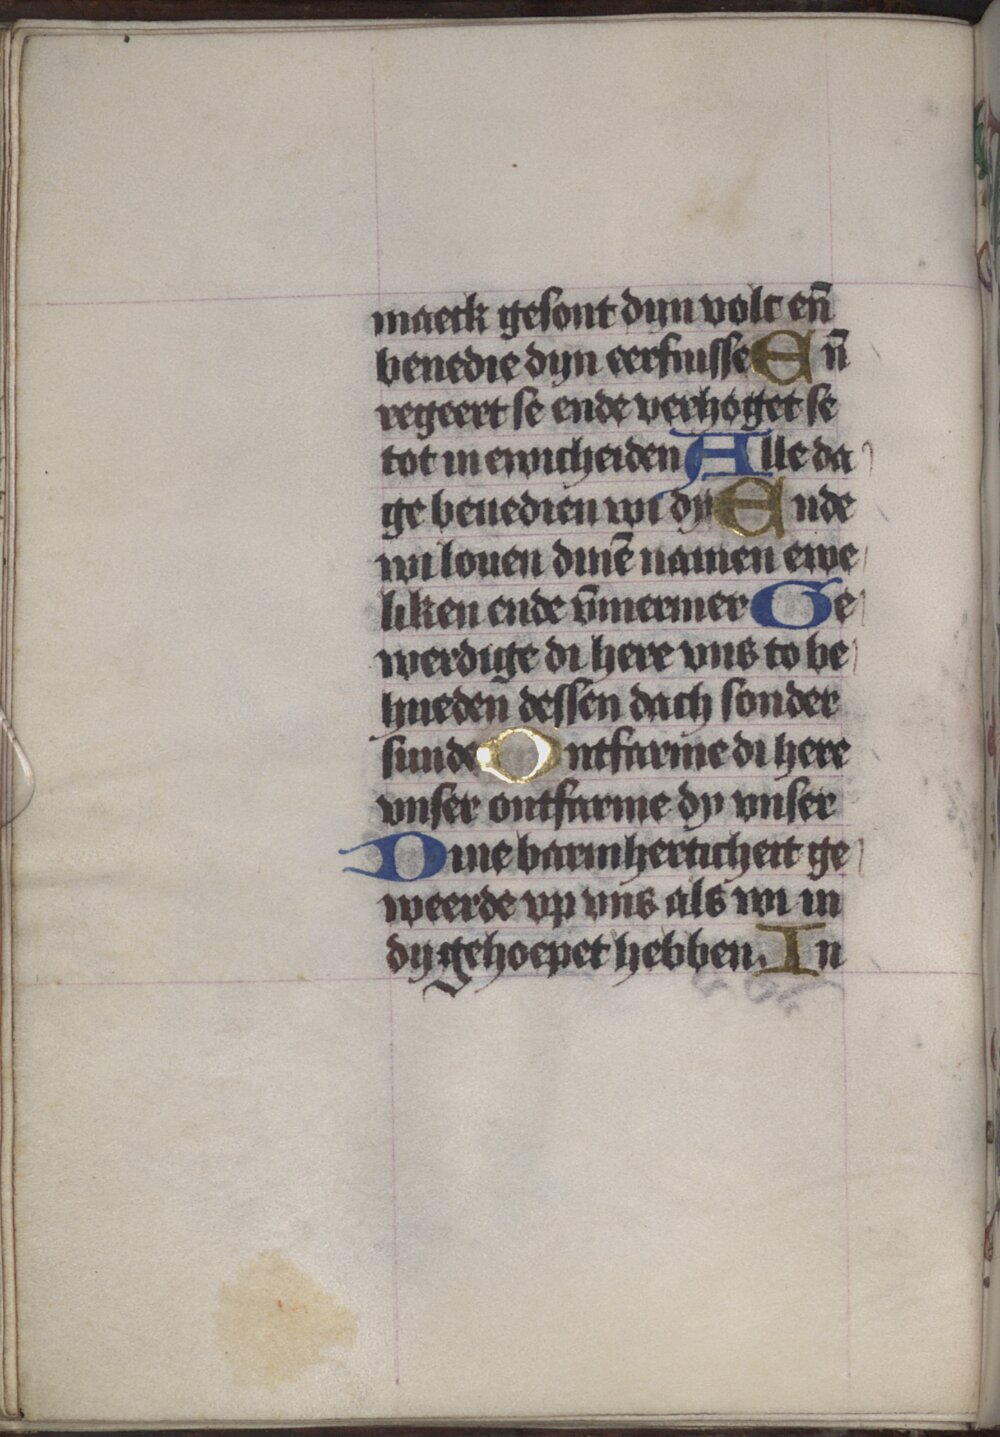 maeck gesont dyn volc en̄
benedie dyn eerfnisse En̄
regeert se ende verhoget se
tot in ewicheiden Alle da
ge benedien wi dy Ende
wi louen dinē namen ewe
liken ende v̄mermer Ge
werdige di here vns to be
hueden̄ dessen dach sonder
sunde Ontfarme di here
vnser ontfarme dy vnser
Dine barmherticheit ge
weerde vp vns als wi in
dy gehoepet hebben. In